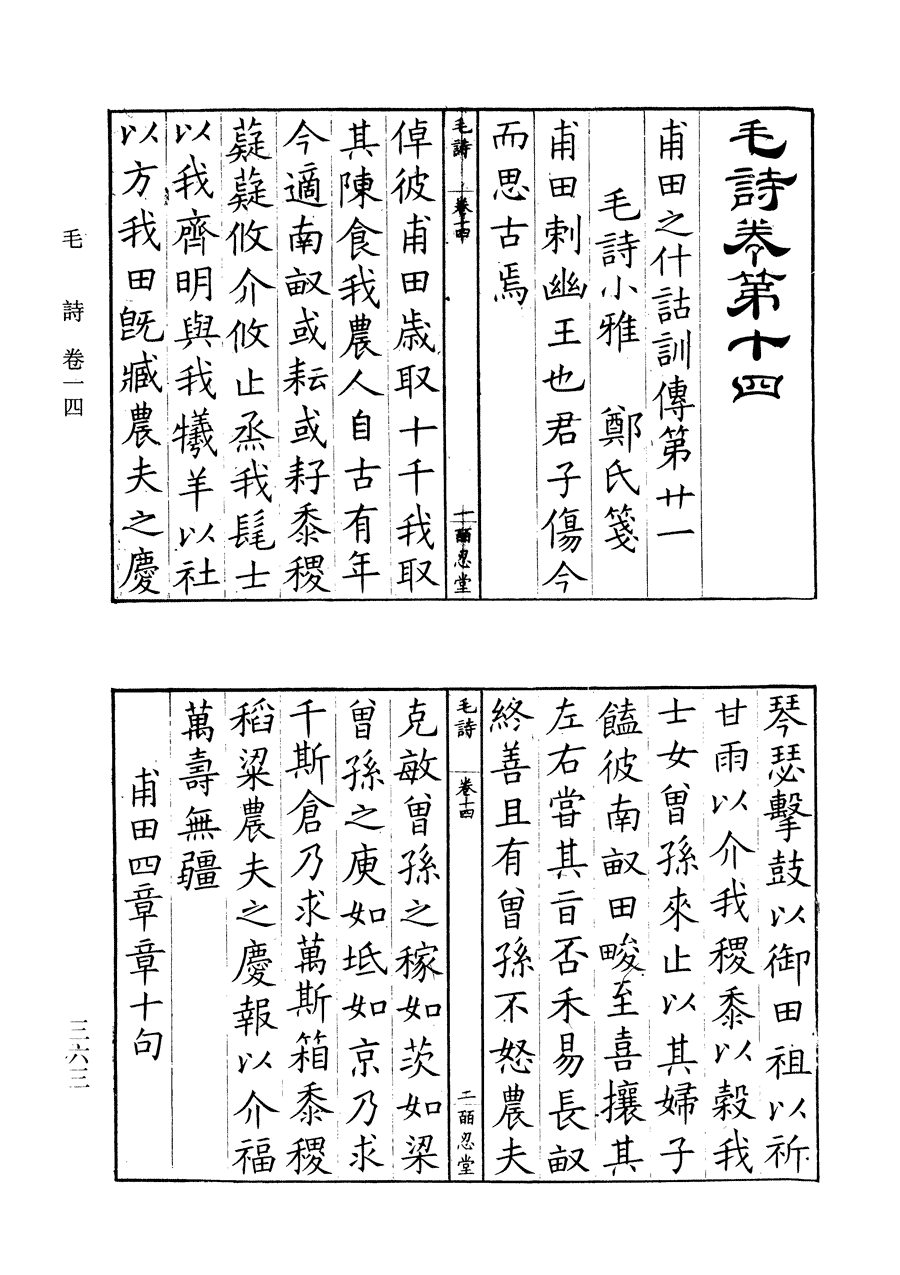 毛詩卷第十四
甫田之什詁訓傳第廿一
毛詩小雅　鄭氏箋
甫田刺幽王也君子傷今
而思古焉
毛詩　卷十四　一　皕忍堂
倬彼甫田歲取十千我取
其陳食我農人自古有年
今適南畝或耘或耔黍稷
薿薿攸介攸止烝我髦士
以我齊明與我犧羊以社
以方我田既臧農夫之慶
琴瑟擊鼓以御田祖以祈
甘雨以介我稷黍以穀我
士女曾孫來止以其婦子
饁彼南畝田畯至喜攘其
左右嘗其旨否禾易長畝
終善且有曾孫不怒農夫
毛詩　卷十四　二　皕忍堂
克敏曾孫之稼如茨如梁
曾孫之庾如坻如京乃求
千斯倉乃求萬斯箱黍稷
稻粱農夫之慶報以介福
萬壽無疆
甫田四章章十句
毛詩　卷一四
三六三